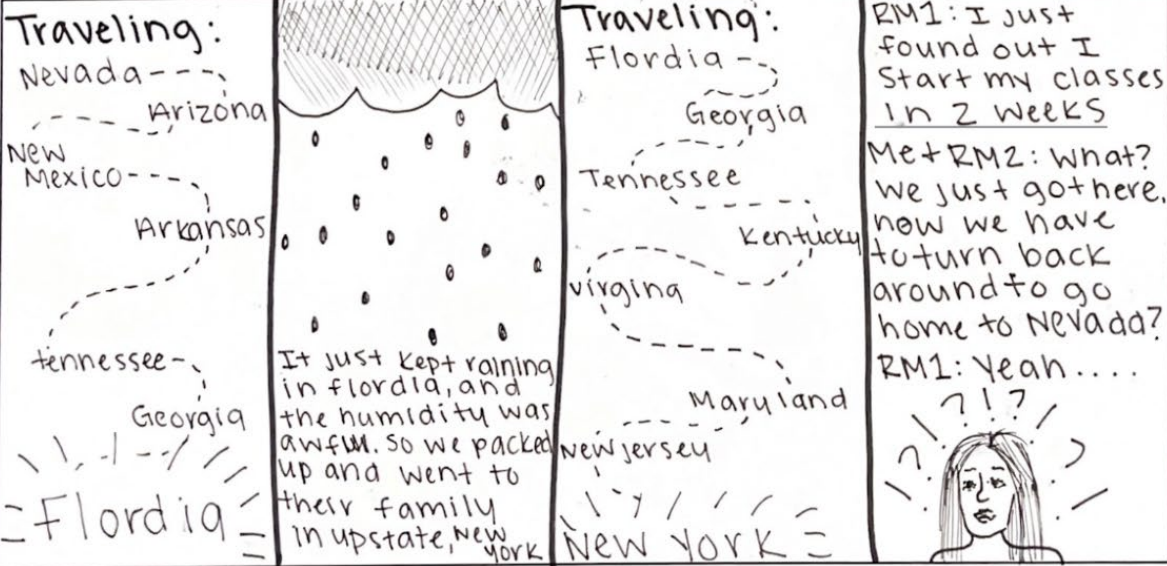 Traveling:
Nevada
Arizona
New
Mexico
Arkansas
tennessee
Georgia
Flordia
It just kept raining
in flordia, and
the humidity was
awful. So we packed
up and went to
their family
in upstate, New
York
Traveling:
Flordia
Georgia
Tennessee
Kentucky
virgina
Maryland
New jersey
New York
RM1: I just
found out I
Start my classes
in 2 weeks
Me + RM2: What?
We just got here,
now we have
to turn back
around to go
home to Nevada?
RM1: Yeah....
? ! ?
?
?